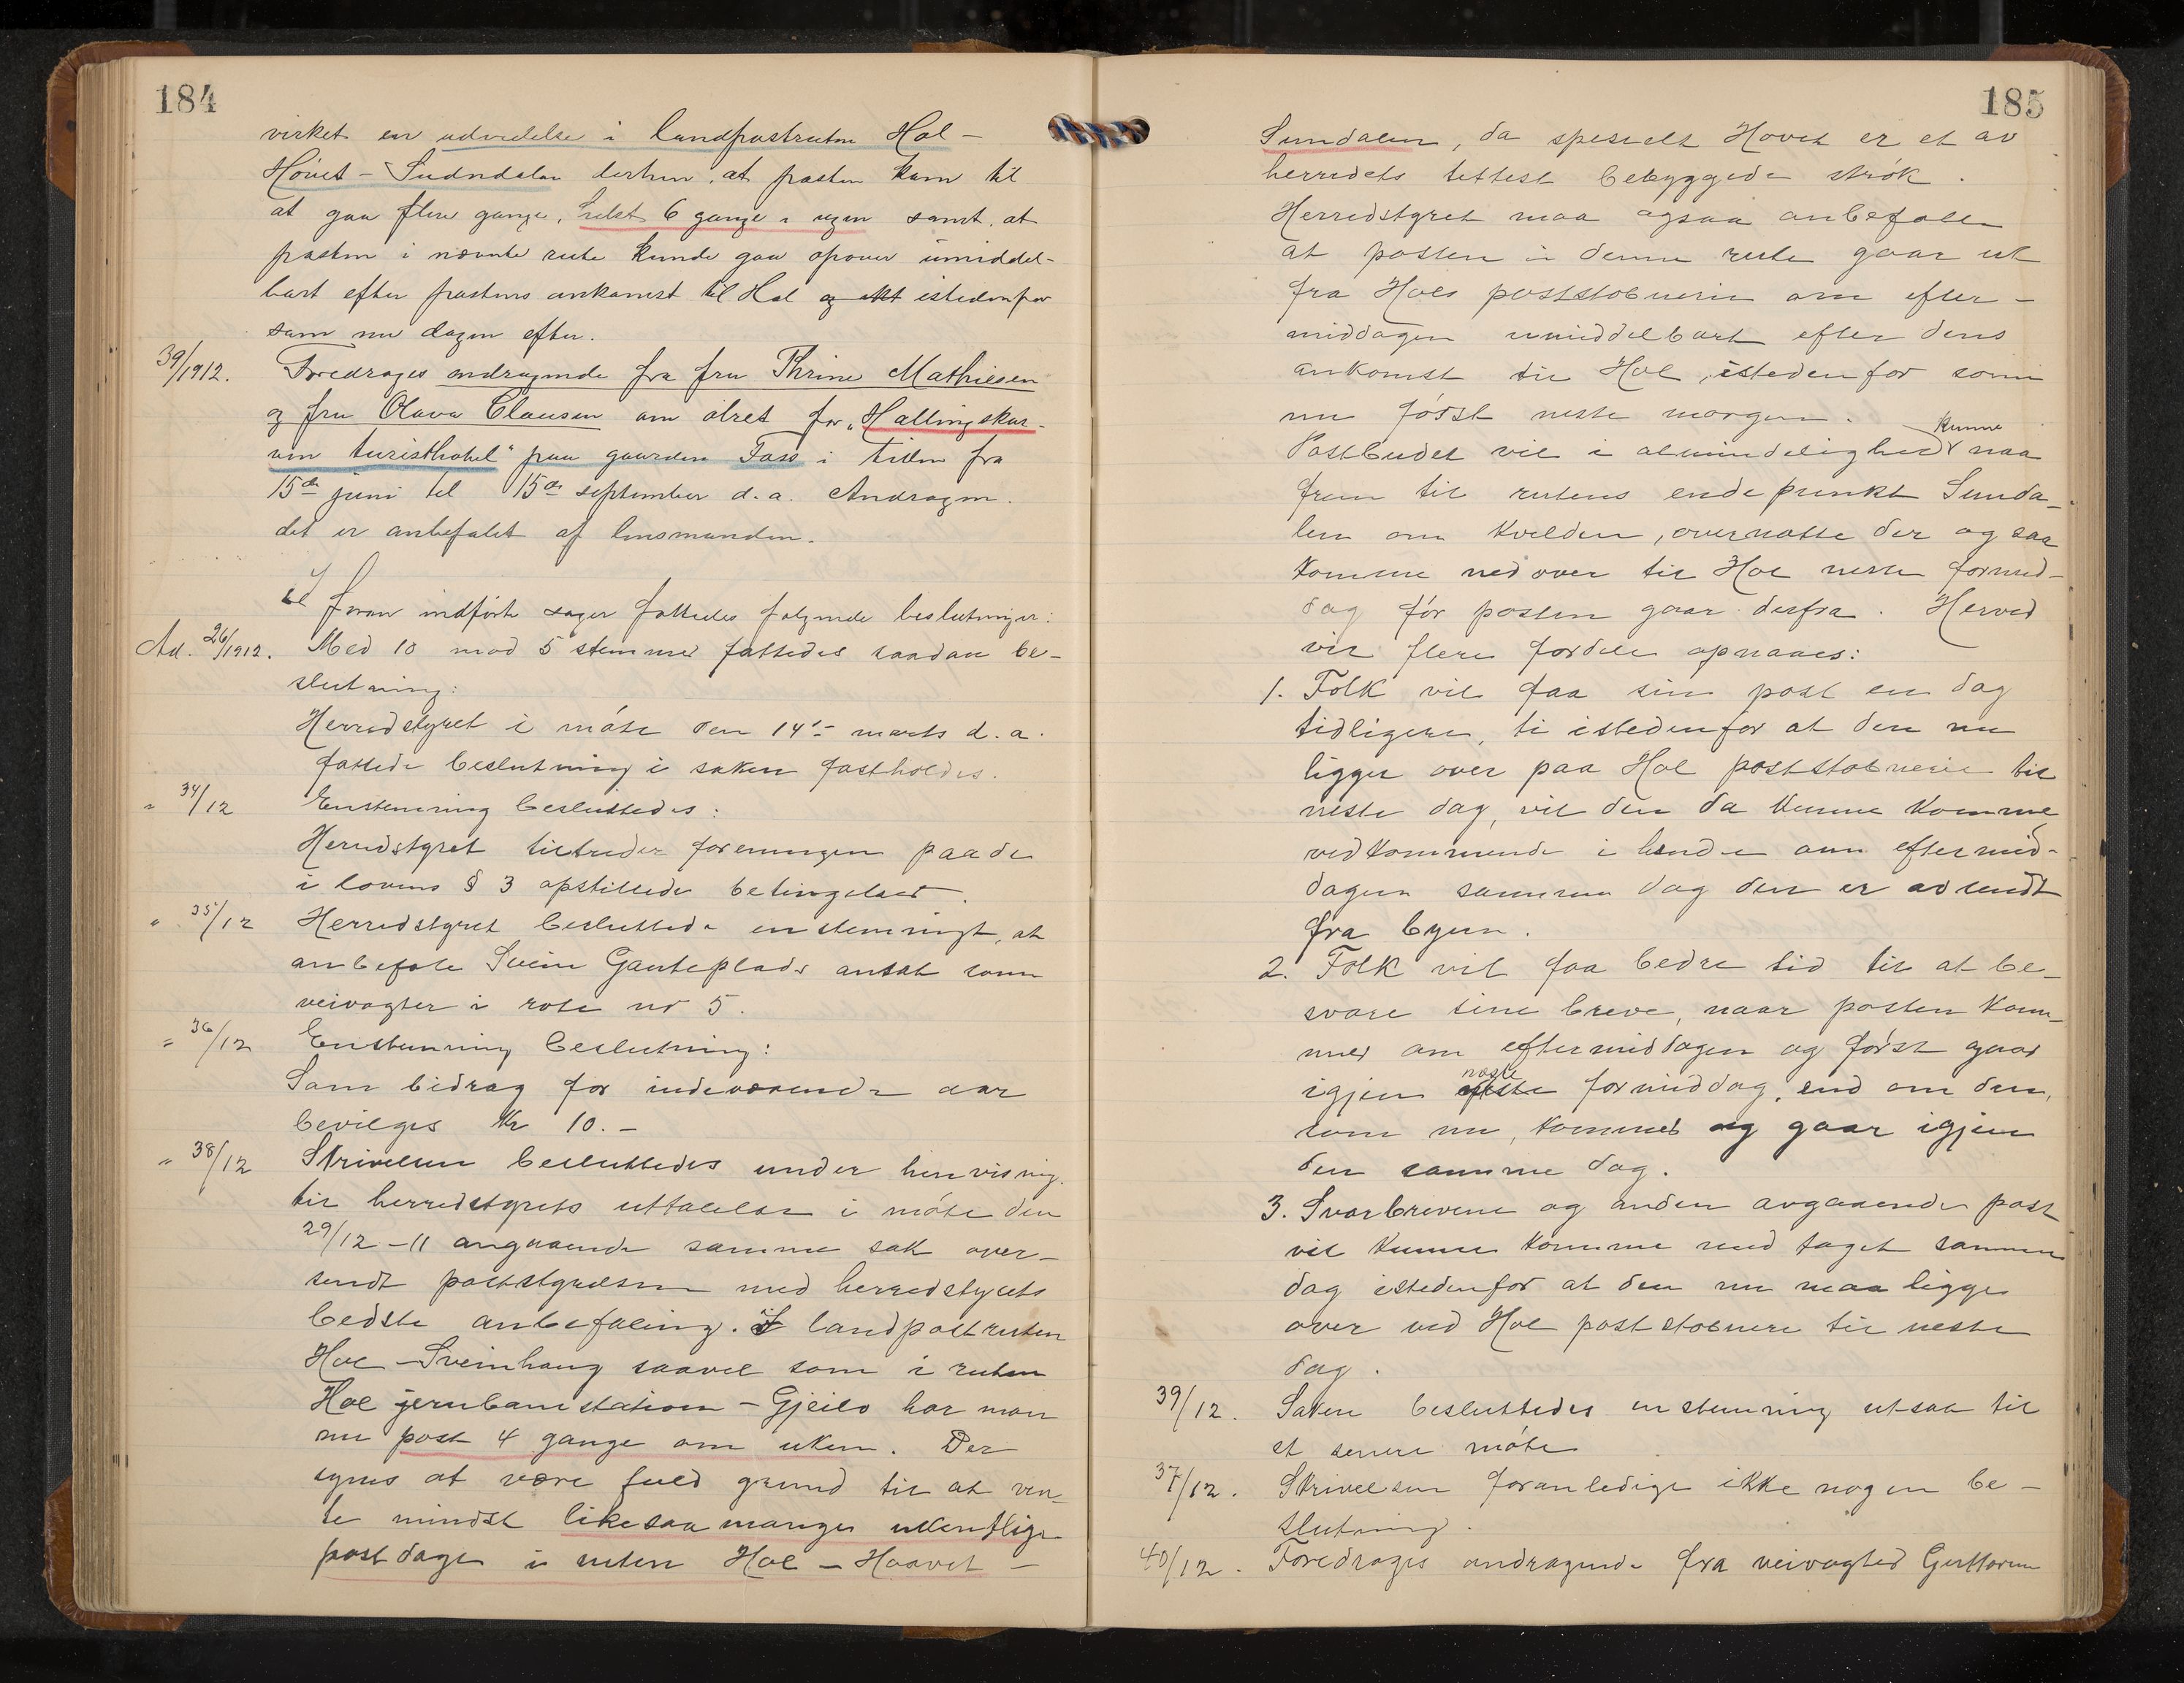 184
virket en udvidelse i landpostruten Hol –
Høvet – Sudndalen derhen, at posten kom til
at gaa flere gange, helst 6 gange i ugen samt, at
posten i nævnte rute kunde gaa opover umiddel-
bart efter postens ankomst til Hol istedenfor
som nu dagen efter.
39/1912. Foredroges andragende fra fru Thrine Mathiesen
og fru Olava Clausen om ølret for „Hallingskar-
ven turisthotel“ paa gaarden Foss i tiden fra
15de juni til 15de september d.a. Andragen-
det er anbefalet af lensmanden.
I foran indførte sager fattedes følgende beslutninger:
Ad. 26/1912. Med 10 mod 5 stemmer fattedes saadan be-
slutning:
Herredstyret i møte den 14'- marts d.a.
fattede beslutning i saken fastholdes.
" 34/12 Enstemmig besluttedes:
Herredstyret tiltræder foreningen paa de
i lovens § 3 opstillede betingelser.
" 35/12 Herredstyret besluttede enstemmigt, at
anbefale Svein Ganteplads antat som
veivogter i rote nr 5.
" 36/12 Enstemmig beslutning:
Som bidrag for indeværende aar
bevilges Kr 10.–
" 38/12 Skrivelsen besluttedes under henvisning
til herredstyrets uttalelse i møte den
29/12 – 11 angaaende samme sak over-
sendt poststyrelsen med herredstyrets
bedste anbefaling. I landpostruten
Hol – Sveinhaug saavel som i ruten
Hol jernbanestation – Gjeilo har man
nu post 4 gange om uken. Der
synes at være fuld grund til at ven-
te mindst likesaa mange ukentlige
postdage i ruten Hol – Haavet –
185
Sundalen, da spesielt Hovet er et av
herredets tettest bebyggede strøk.
Herredstyret maa ogsaa anbefale
at posten i denne rute gaar ut
fra Hols poststobneri om efter-
middagen umiddelbart efter dens
ankomst til Hol, istedenfor som
nu først neste morgen.
Postbudet vil i almindelighed kunne naa
frem til rutens endepunkt Sunda-
len om kvelden, overnatte der og saa
komme nedover til Hol neste formid-
dag før posten gaar derfra. Herved
vil flere fordele opnaaes:
1. Folk vil faa sin post en dag
tidligere, ti istedenfor at den nu
ligger over paa Hol poststobneri til
neste dag, vil den da kunne komme
vedkommende i hende om eftermid-
dagen samme dag den er avsendt
fra byen.
2. Folk vil faa bedre tid til at be-
svare sine breve, naar posten kom-
mer om eftermiddagen og først gaar
igjen næste formiddag, end om den,
som nu, kommer og gaar igjen
den samme dag.
3. Svarbrevene og anden avgaaende post
vil kunne komme med toget samme
dag istedenfor at den nu maa ligge
over ved Hol poststobneri til neste
dag.
39/12. Saken besluttedes enstemmig utsat til
et senere møte
37/12. Skrivelsen foranledige ikke nogen be-
slutning.
40/12. Foredroges andragende fra veivogter Guttorm